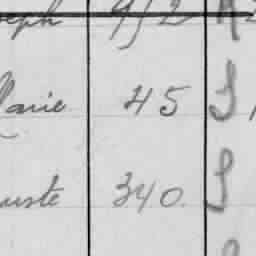 eph 912
Marie 45 S
uste 340 S